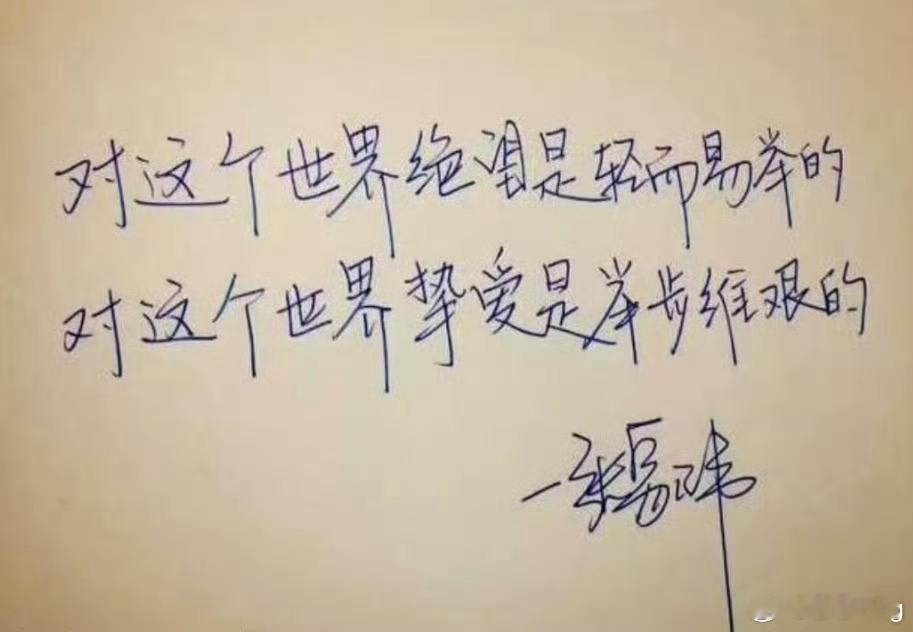 对这个世界绝望是轻而易举的
对这个世界挚爱是举步维艰的